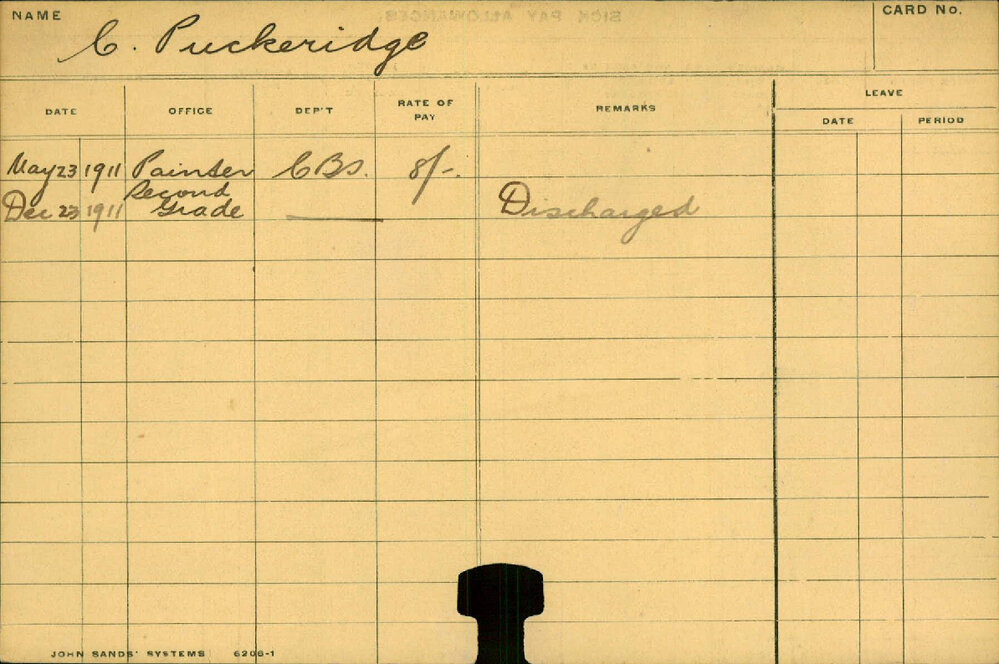 NAME
CARD No.
C. Puckeridge
DATE OFFICE DEP'T RATE OF PAY REMARKS LEAVE
DATE PERIOD
May 23 1911 Painter CBs. 8/-.
Second
Dec 23 1911 Grade Discharged
JOHN SANDS' SYSTEMS 6206-1